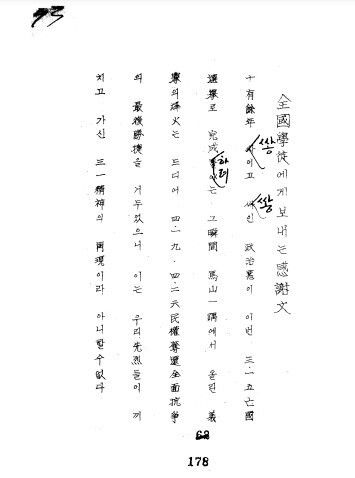 全國學徒에게보내는感謝文
十有餘年 이고 인 政治惡이 이번 三·一五亡國
選擧로 完成 는 그瞬間 馬山一隅에서 올린 義
擧의烽火는 드디어 四·一九·四·二六民權奪還全面抗爭
의 最後勝捷을 거두었으니 이는 우리先烈들이 끼
치고 가신 三一精神의 再現이라 아니할수없다
쌓
쌓
하려
178